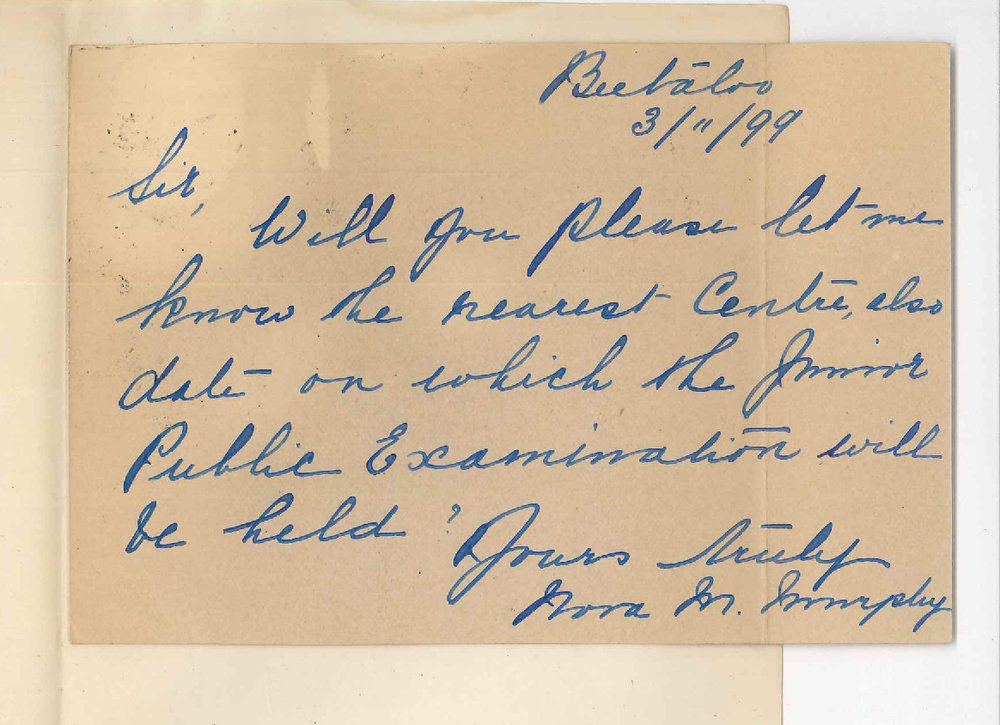 Beetaloo
3/11/99
Sir,
Will you please let me
know the nearest Centre, also
date on which the Junior
Public Examination will
be held?
Yours truly
Nora M. Murphy